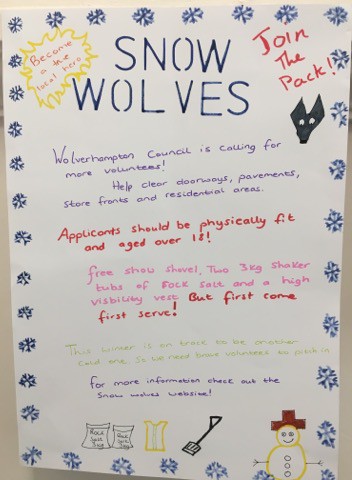 Become
a the
local hero
SNOW
WOLVES
Join
The
Pack!
Wolverhampton Council is calling for
more volunteers!
Help clear doorways, pavements,
store fronts and residential areas.
Applicants should be physically fit
and aged over 18!
free snow shovel, Two 3kg shaker
tubs of Rock salt and a high
visibility vest But first come
first serve!
This winter is on track to be another
cold one so we need brave volunteers to pitch in
for more information check out the
Snow wolves website!
Rock
Salt
3kg
Rock
Salt
3kg